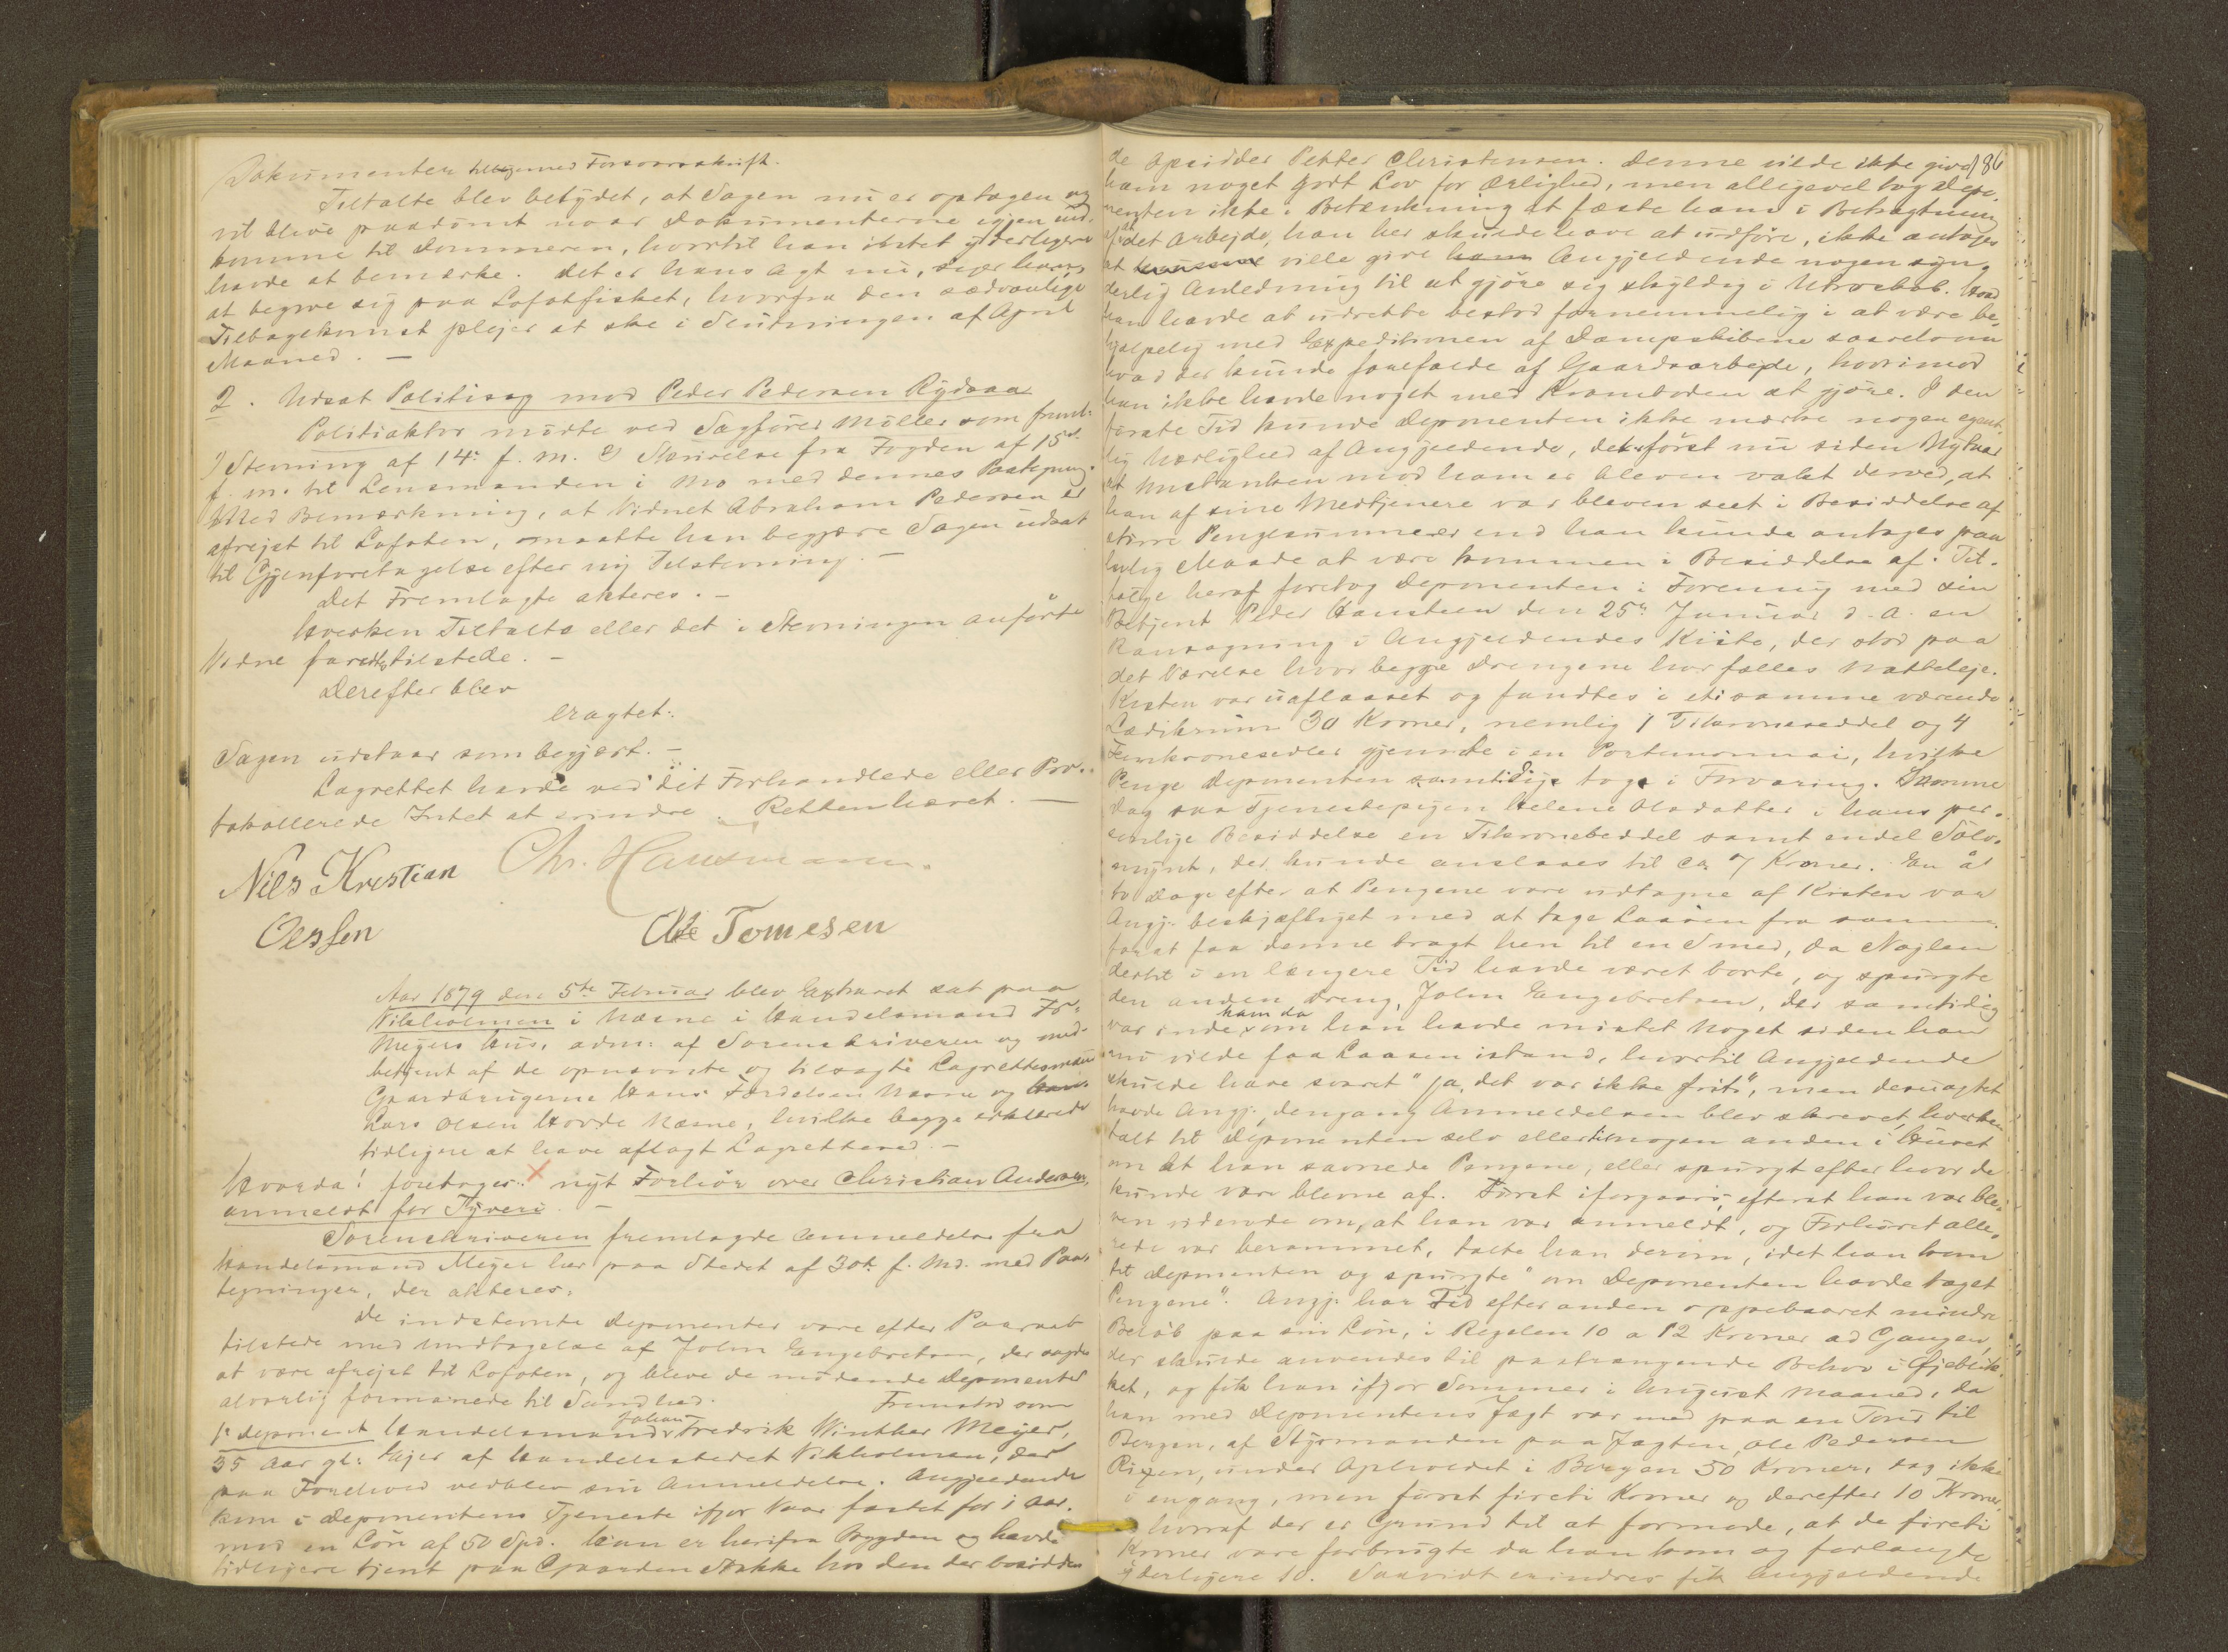 Dokumenter tilligemed Forsvarsskrift.
Tiltalte blev betydet, at Sagen nu er optagen og
vil blive paadømt naar Dokumenterne igjen ind-
komme til Dommeren, hvortil han intet yderligere
havde at bemærke. Det er hans Agt nu, siger han,
at begive sig paa Lofotfisket, hvorfra den sædvanlige
Tilbagekomst plejer at ske i Slutningen af April
Maaned. —
2. Udsat Politisag mod Peder Pedersen Rydsaa
Politiaktor mødte ved Sagfører Møller som freml:
1) Stevning af 14: f. M. 2) Skrivelse fra Fogden af 15de
f. M. til Lensmanden i Mo med dennes Paategning.
Med Bemærkning, at Vidnet Abraham Pedersen er
afrejst til Lofoten, maatte han begjære Sagen udsat
til Gjenforetagelse efter ny Tilstevning. —
Det Fremlagte akteres. —
Hverken Tiltalte eller det i Stevningen anførte
Vidne fandtes tilstede. —
Derefter blev
eragtet:
Sagen udstaar som begjært. —
Lagrettet havde ved det Forhandlede eller Pro-
tokollerede Intet at erindre. Retten hævet. —
Nils Kristian Chr. Hansmann
Oessen Ole Tomesen
Aar 1879 den 5te Februar blev Extraret sat paa
Vikholmen i Næsne i Handelsmand Fr.
Meyers Hus, adm: af Sorenskriveren og med-
betjent af de opnævnte og tilsagte Lagrettesmænd
Gaardbrugerne Hans Færdelsen Næsne og
Lars Olsen Hovde Næsne, hvilke begge erklærede
tidligere at have aflagt Lagrettesed. —
Hvorda! foretages: nyt Forhør over Christian Andersen,
anmeldt for Tyveri. —
Sorenskriveren fremlagde Anmeldelse fra
Handelsmand Meyer her paa Stedet af 30te f. Md. med Paa-
tegninger, der akteres.
De indstevnte Deponenter vare efter Paaraab
tilstede med Undtagelse af John Engebretsen, der sagdes
at være afrejst til Lofoten, og bleve de mødende Deponenter
alvorlig formanede til Sandhed. Fremstod som
1ste Deponent Handelsmand Johan Fredrik Winther Meyer,
35 Aar gl: Ejer af Handelsstedet Vikholmen, der
paa Forehold vedblev sin Anmeldelse. Angjeldende
kom i Deponentens Tjeneste ifjor Vaar fæstet for 1 Aar
mod en Løn af 50 Spd. Han er herifra Bygden og havde
tidligere tjent paa Gaarden Stokke hos den der bosidden-
186
de Opsidder Petter Christensen. Denne vilde ikke give
ham noget godt Lov for Ærlighed, men alligevel tog Depo-
nenten ikke i Betænkning at fæste ham i Betragtning
af at det Arbejde, han her skulde have at udføre, ikke antoges
at ville give Angjeldende nogen syn-
derlig Anledning til at gjøre sig skyldig i Utroskab. Hvad
han havde at udrette bestod fornemmelig i at være be-
hjælpelig med Expeditionen af Dampskibene saavelsom
hvad der kunde forefalde af Gaardsarbejde, hvorimod
han ikke havde noget med Kramboden at gjøre. I den
første Tid kunde Deponenten ikke mærke nogen egent-
lig Uærlighed af Angjeldende, det er først nu siden Nytaar
at Mistanken mod ham er bleven vakt derved, at
han af sine Medtjenere var bleven seet i Besiddelse af
større Pengesummer end han kunde antages paa
lovlig Maade at være kommen i Besiddelse af. Til-
følge heraf foretog Deponenten i Forening med sin
Betjent Peder Hansteen den 25de Januar d. A. en
Ransagning i Angjeldendes Kiste, der stod paa
det Værelse hvor begge Drengene har fælles Natteleje.
Kisten var uaflaaset og fandtes i et i samme værende
Lædikrum 30 Kroner, nemlig 1 Tikroneseddel og 4
Femkronesedler gjemte i en Portemonnai, hvilke
Penge Deponenten samtidige toge i Forvaring. Samme
Dag saa Tjenestepigen Helene Olsdatter i hans per-
sonlige Besiddelse en Tikroneseddel samt endel Sølv-
mynt, der kunde anslaaes til ca 7 Kroner. En à
to Dage efter at Pengene vare udtagne af Kisten var
Angj. beskjæftiget med at tage Laasen fra samme
for at faa denne bragt hen til en Smed, da Nøglen
dertil i en længere Tid havde været borte, og spurgte
den anden Dreng, John Engebretsen, der samtidig
var inde, ham da om han havde mistet noget siden han
nu vilde faa Laasen istand, hvortil Angjeldende
skulde have svaret "Ja, det var ikke frit", men desuagtet
havde Angj., dengang Anmeldelsen blev skrevet, hverken
talt til Deponenten selv eller til nogen anden i Huset
om at han savnede Pengene, eller spurgt efter hvor de
kunde være blevne af. Først iforgaars, efterat han var ble-
ven vidende om, at han var anmeldt, og Forhøret alle-
rede var berammet, talte han derom, idet han kom
til Deponenten og spurgte "om Deponenten havde taget
Pengene". Angj. har Tid efter anden oppebaaret mindre
Beløb paa sin Løn, i Regelen 10 a 12 Kroner ad Gangen,
der skulde anvendes til paatrængende Behov i Øjeblik-
ket, og fik han ifjor Sommer i August Maaned, da
han med Deponentens Jægt var med paa en Tour til
Bergen, af Styrmanden paa Jægten, Ole Pedersen
under Opholdet i Bergen 50 Kroner, dog ikke
i engang, men først fireti Kroner og derefter 10 Kroner,
hvoraf der er Grund til at formode, at de fireti
Kroner vare forbrugte da han kom og forlangte
yderligere 10. Saavidt erindres fik Angjeldende